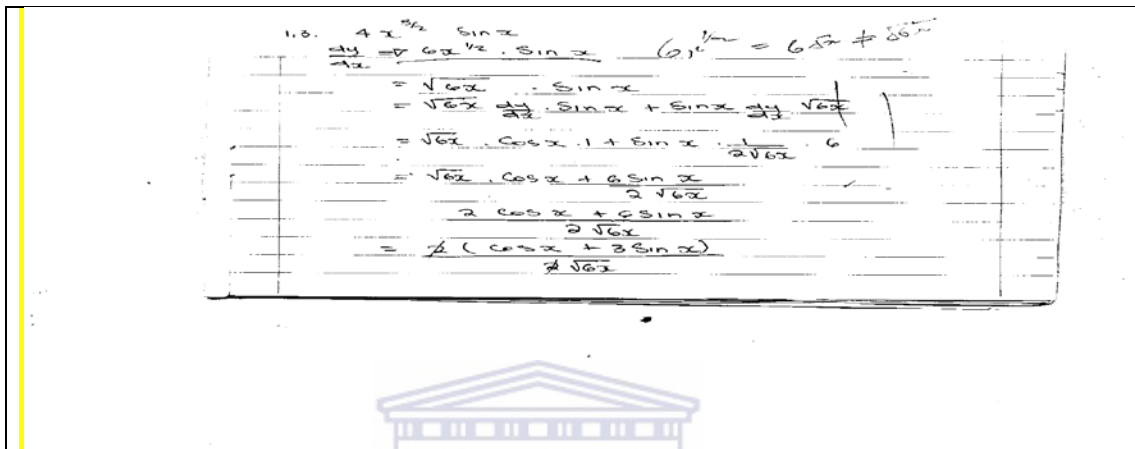 1.3. 4x^{3/2} Sin x
dy/dx ⇒ 6x^{1/2} . Sin x 6x^{1/2} = 6√x ≠ √6x
= √6x . Sin x
= √6x dy/dx . Sin x + Sin x dy/dx √6x
= √6x . Cos x . 1 + Sin x . 1/(2√6x) . 6
= √6x . Cos x + 6 Sin x/(2√6x)
2 Cos x + 6 Sin x/(2√6x)
= 2(Cos x + 3 Sin x)/(2√6x)